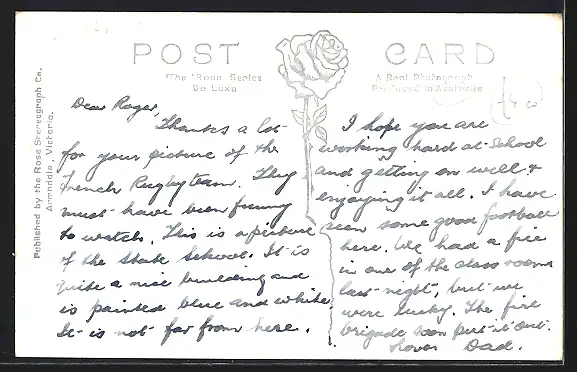 POST CARD
The "Rose Series
De Luxe
A Real Photograph
Produced in Australia
Published by the Rose Stereograph Co.
Armadale, Victoria.
Dear Roger,
Thanks a lot
for your picture of the
French Rugby team. They
must have been funny
to watch. This is a picture
of the State School. It is
quite a nice building and
is painted blue and white.
It is not far from here.
I hope you are
working hard at School
and getting on well &
enjoying it all. I have
seen some good football
here. We had a fire
in one of the class rooms
last night, but we
were lucky. The fire
brigade soon put it out.
Love Dad.